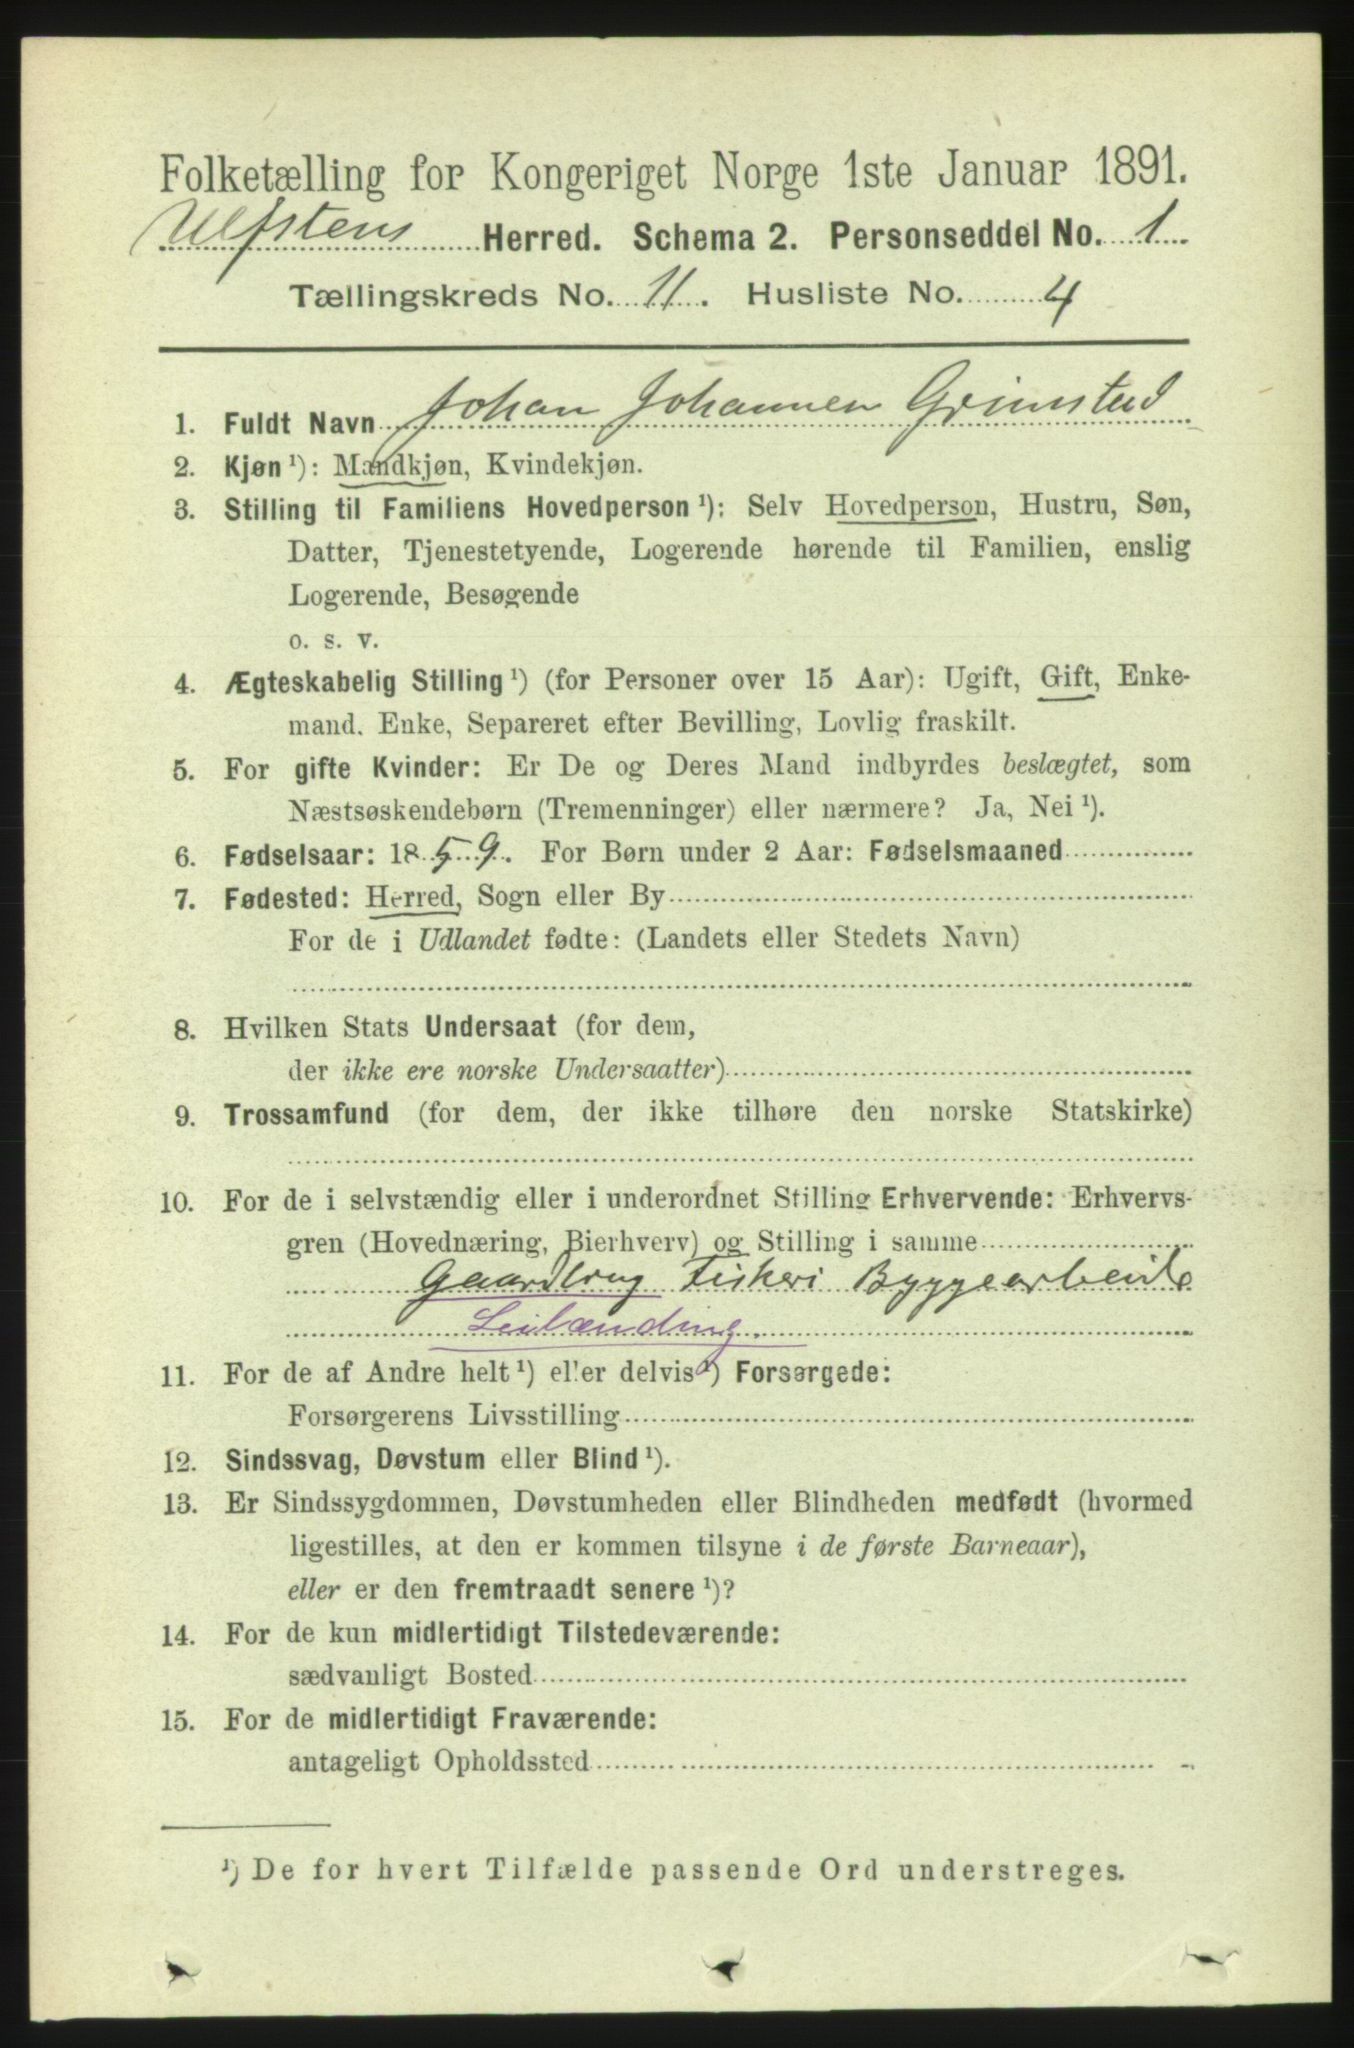 Folketælling for Kongeriget Norge 1ste Januar 1891.
Ulfstens Herred. Schema 2. Personseddel No. 1
Tællingskreds No. 11. Husliste No. 4
1. Fuldt Navn Johan Johannen Grimstad
2. Kjøn¹): Mandkjøn, Kvindekjøn.
3. Stilling til Familiens Hovedperson¹): Selv Hovedperson, Hustru, Søn,
Datter, Tjenestetyende, Logerende hørende til Familien, enslig
Logerende, Besøgende
o. s. v.
4. Ægteskabelig Stilling¹) (for Personer over 15 Aar): Ugift, Gift, Enke-
mand. Enke, Separeret efter Bevilling, Lovlig fraskilt.
5. For gifte Kvinder: Er De og Deres Mand indbyrdes beslægtet, som
Næstsøskendebørn (Tremenninger) eller nærmere? Ja, Nei¹).
6. Fødselsaar: 1859. For Børn under 2 Aar: Fødselsmaaned
7. Fødested: Herred, Sogn eller By
For de i Udlandet fødte: (Landets eller Stedets Navn)
8. Hvilken Stats Undersaat (for dem,
der ikke ere norske Undersaatter)
9. Trossamfund (for dem, der ikke tilhøre den norske Statskirke)
10. For de i selvstændig eller i underordnet Stilling Erhvervende: Erhvervs-
gren (Hovednæring, Bierhverv) og Stilling i samme
Gaardbrug Fiskeri Byggearbeide
Leilænding.
11. For de af Andre helt¹) eller delvis¹) Forsørgede:
Forsørgerens Livsstilling
12. Sindssvag, Døvstum eller Blind¹).
13. Er Sindssygdommen, Døvstumheden eller Blindheden medfødt (hvormed
ligestilles, at den er kommen tilsyne i de første Barneaar),
eller er den fremtraadt senere¹)?
14. For de kun midlertidigt Tilstedeværende:
sædvanligt Bosted
15. For de midlertidigt Fraværende:
antageligt Opholdssted
¹) De for hvert Tilfælde passende Ord understreges.